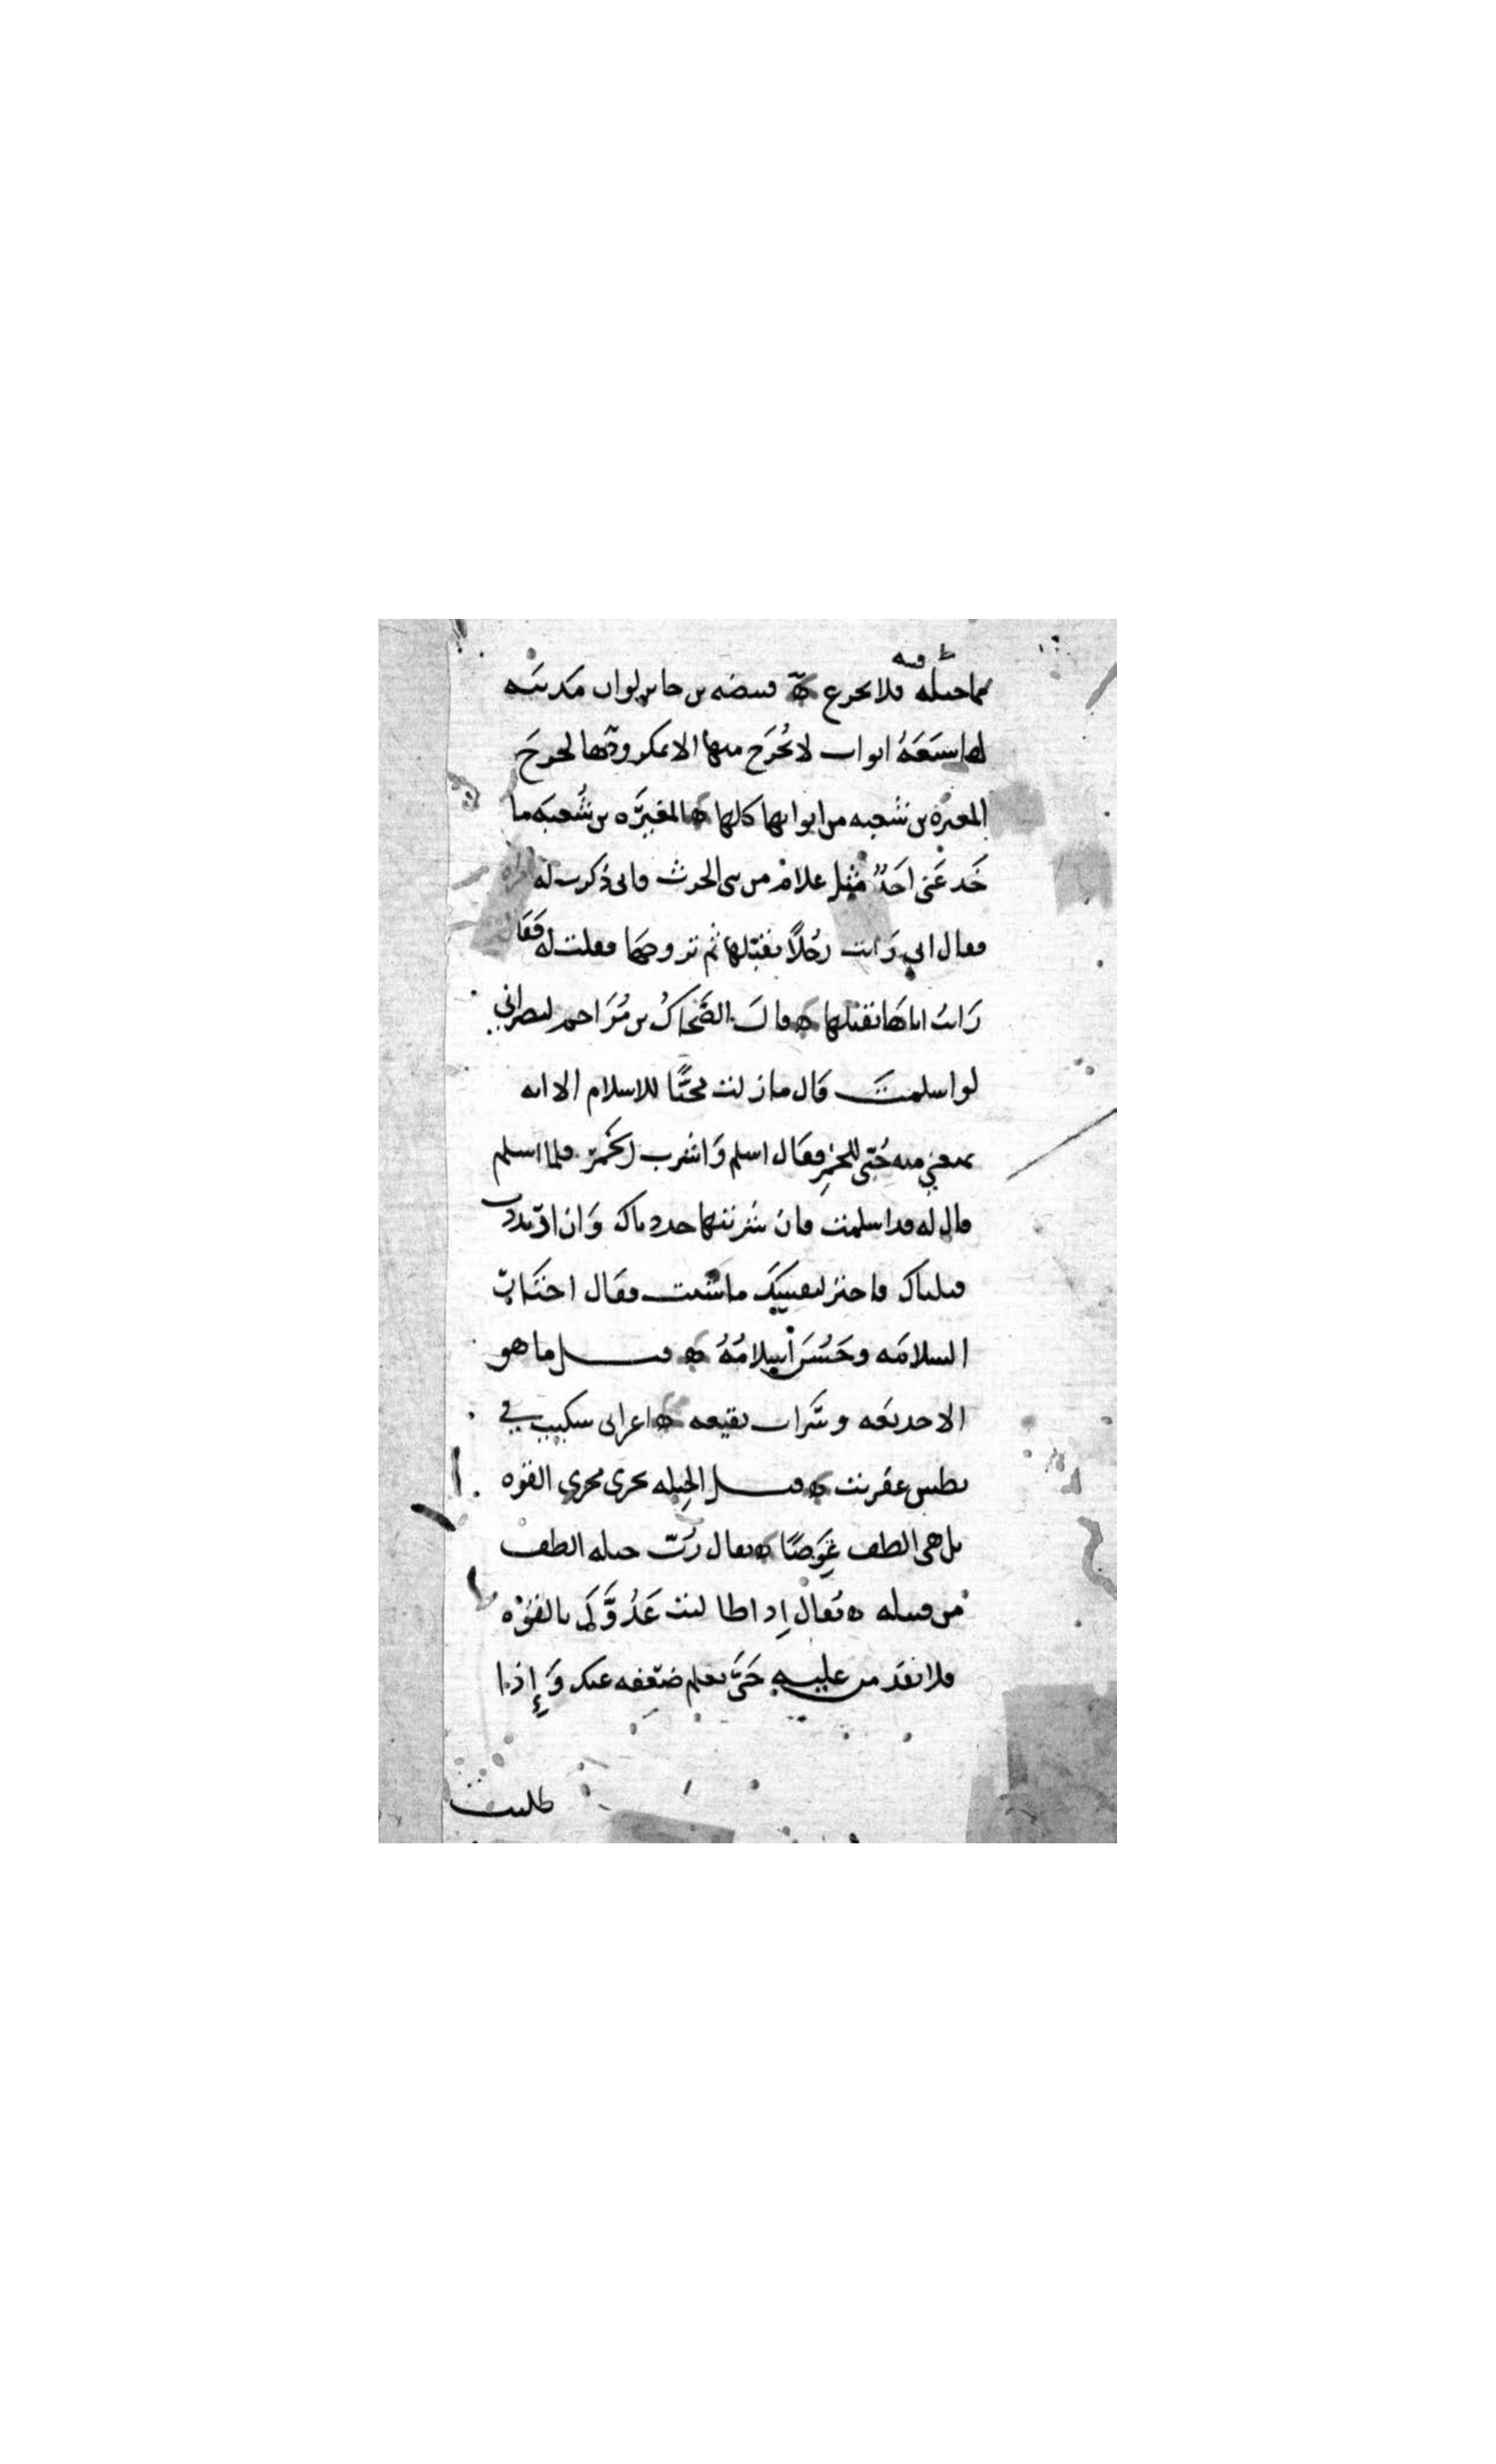 فيه
مما حيله فلا تجزع ه قبيصه بن جابر لو ان مدينه
لها سبعة ابواب لا يُخرَج منها الا بمكر ودهاء لخرج
المغيرة بن شعبه من ابوابها كلها ه المغيرَه بن شُعبَه ما
خَدعَنى احَدٌ مثل غلام من بنى الحرث فانى ذكرت له امراه
فقال انى رَايت رجُلاً يقبّلها ثم تزوجهَا فقلت له فَقَال
رَايتُ اباهَا يقبلها ه قال الضَحاكُ بن مُزَاحم لنصراني
لو اسلمتَ قال ما زلت محبًّا للاسلام الا انه
يمنعني منه حُبّى للخمرِ فقَال اسلم وَاشرب الخمرَ فلما اسلم
قال له قد اسلمت فان شربتها حددناك وَان ارتددت
قتلناك فاختر لنفسِكَ ما شئت فقال اختَارُ
السلامَه وحَسُنَ اسلامُهُ ه قيل ما هو
الا خديعَه وسَراب بقيعه ه اعرابى سكيب في
بطيس عفريت ه قيل الحِيله تجرى مجرى القوه
بل هى الطف غَوصًا ه يقال رُبّ حيله الطف
من قبيله ه يُقال اِذا طالبت عَدُوَّكَ بالقوّه
فلا تقدمن عليه حَتَّى تعلم ضَعفه عنك وَإذا
طلبت